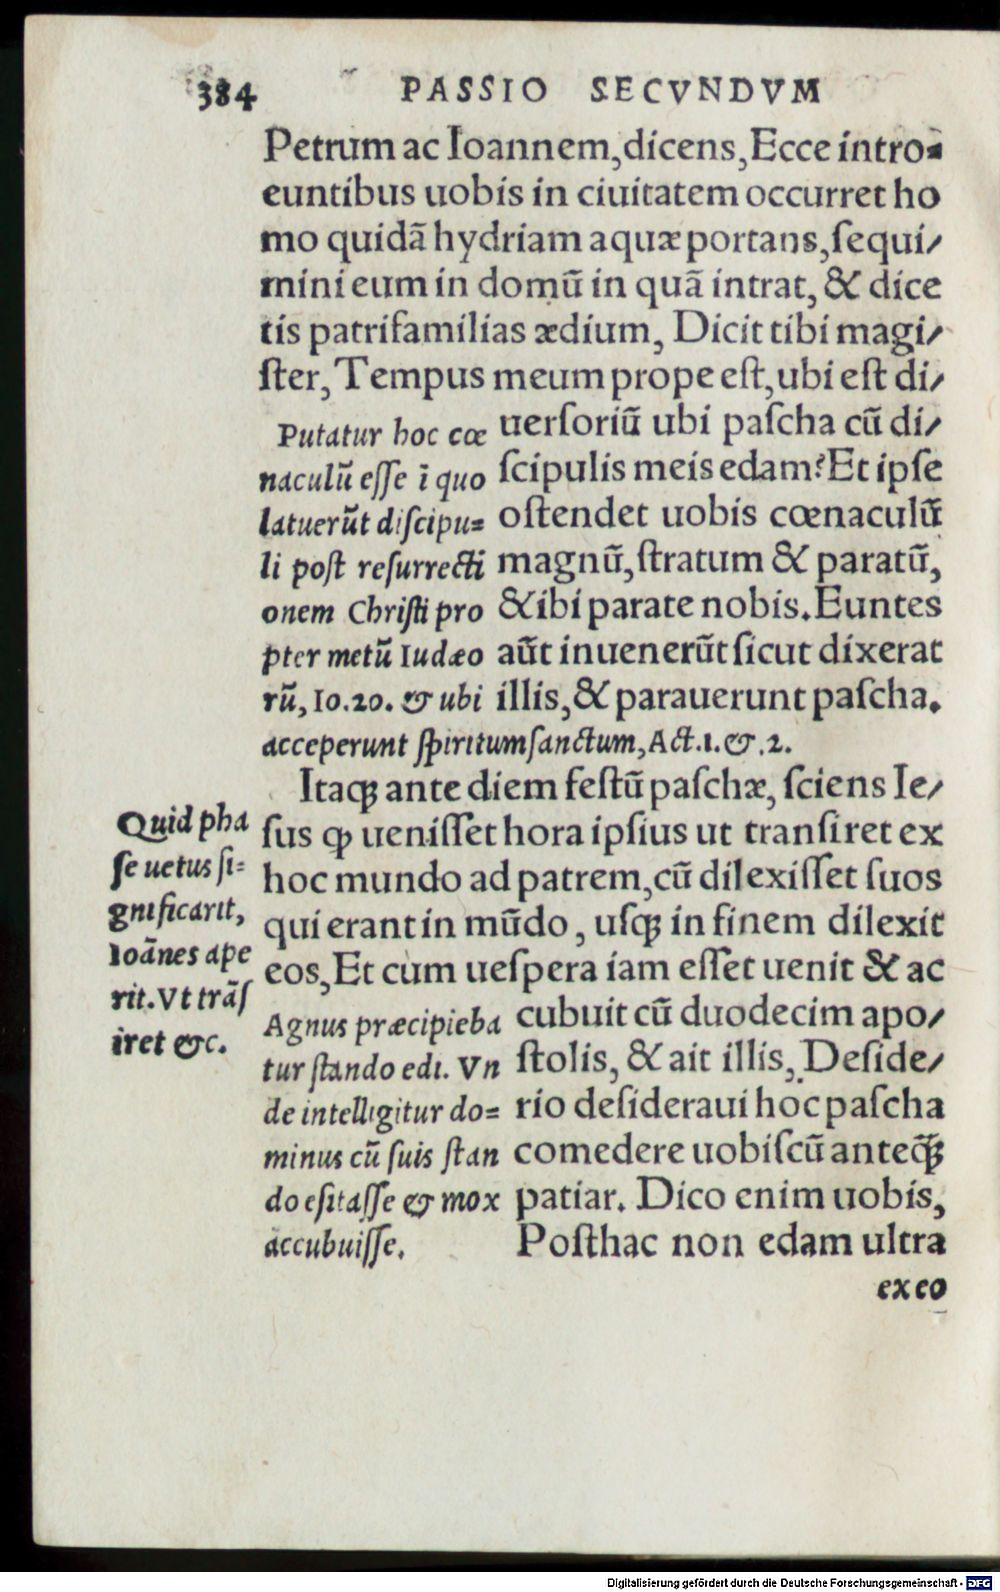 384 PASSIO SECVNDVM
Petrum ac Ioannem, dicens, Ecce intro⸗
euntibus uobis in ciuitatem occurret ho
mo quidã hydriam aquæ portans, ſequi⸗
mini eum in domũ in quã intrat, & dice
tis patrifamilias ædium, Dicit tibi magi⸗
ſter, Tempus meum prope eſt, ubi eſt di⸗
uerſoriũ ubi paſcha cũ di⸗
ſcipulis meis edam? Et ipſe
oſtendet uobis cœnaculũ
magnũ, ſtratum & paratũ,
& ibi parate nobis. Euntes
aũt inuenerũt ſicut dixerat
illis, & parauerunt paſcha.
Putatur hoc cœ
naculũ eſſe ĩ quo
latuerũt diſcipu⸗
li poſt reſurrecti
onem Chriſti pro
pter metũ Iudæo
rũ, Io.20. & ubi
acceperunt ſpiritumſanctum, Act.1.&.2.
Itaqꝫ ante diem feſtũ paſchæ, ſciens Ie⸗
ſus ꝙ ueniſſet hora ipſius ut tranſiret ex
hoc mundo ad patrem, cũ dilexiſſet ſuos
qui erant in mũdo, uſqꝫ in finem dilexit
eos, Et cum ueſpera iam eſſet uenit & ac
cubuit cũ duodecim apo⸗
ſtolis, & ait illis, Deſide⸗
rio deſideraui hoc paſcha
comedere uobiſcũ anteq̃ꝫ
patiar. Dico enim uobis,
Poſthac non edam ultra
Quid pha
ſe uetus ſi⸗
gnificarit,
Ioãnes ape
rit. Vt trãſ
iret &c.
Agnus præcipieba
tur ſtando edi. Vn
de intelligitur do⸗
minus cũ ſuis ſtan
do eſitaſſe & mox
accubuiſſe.
ex eo
Digitalisierung gefördert durch die Deutsche Forschungsgemeinschaft - DFG